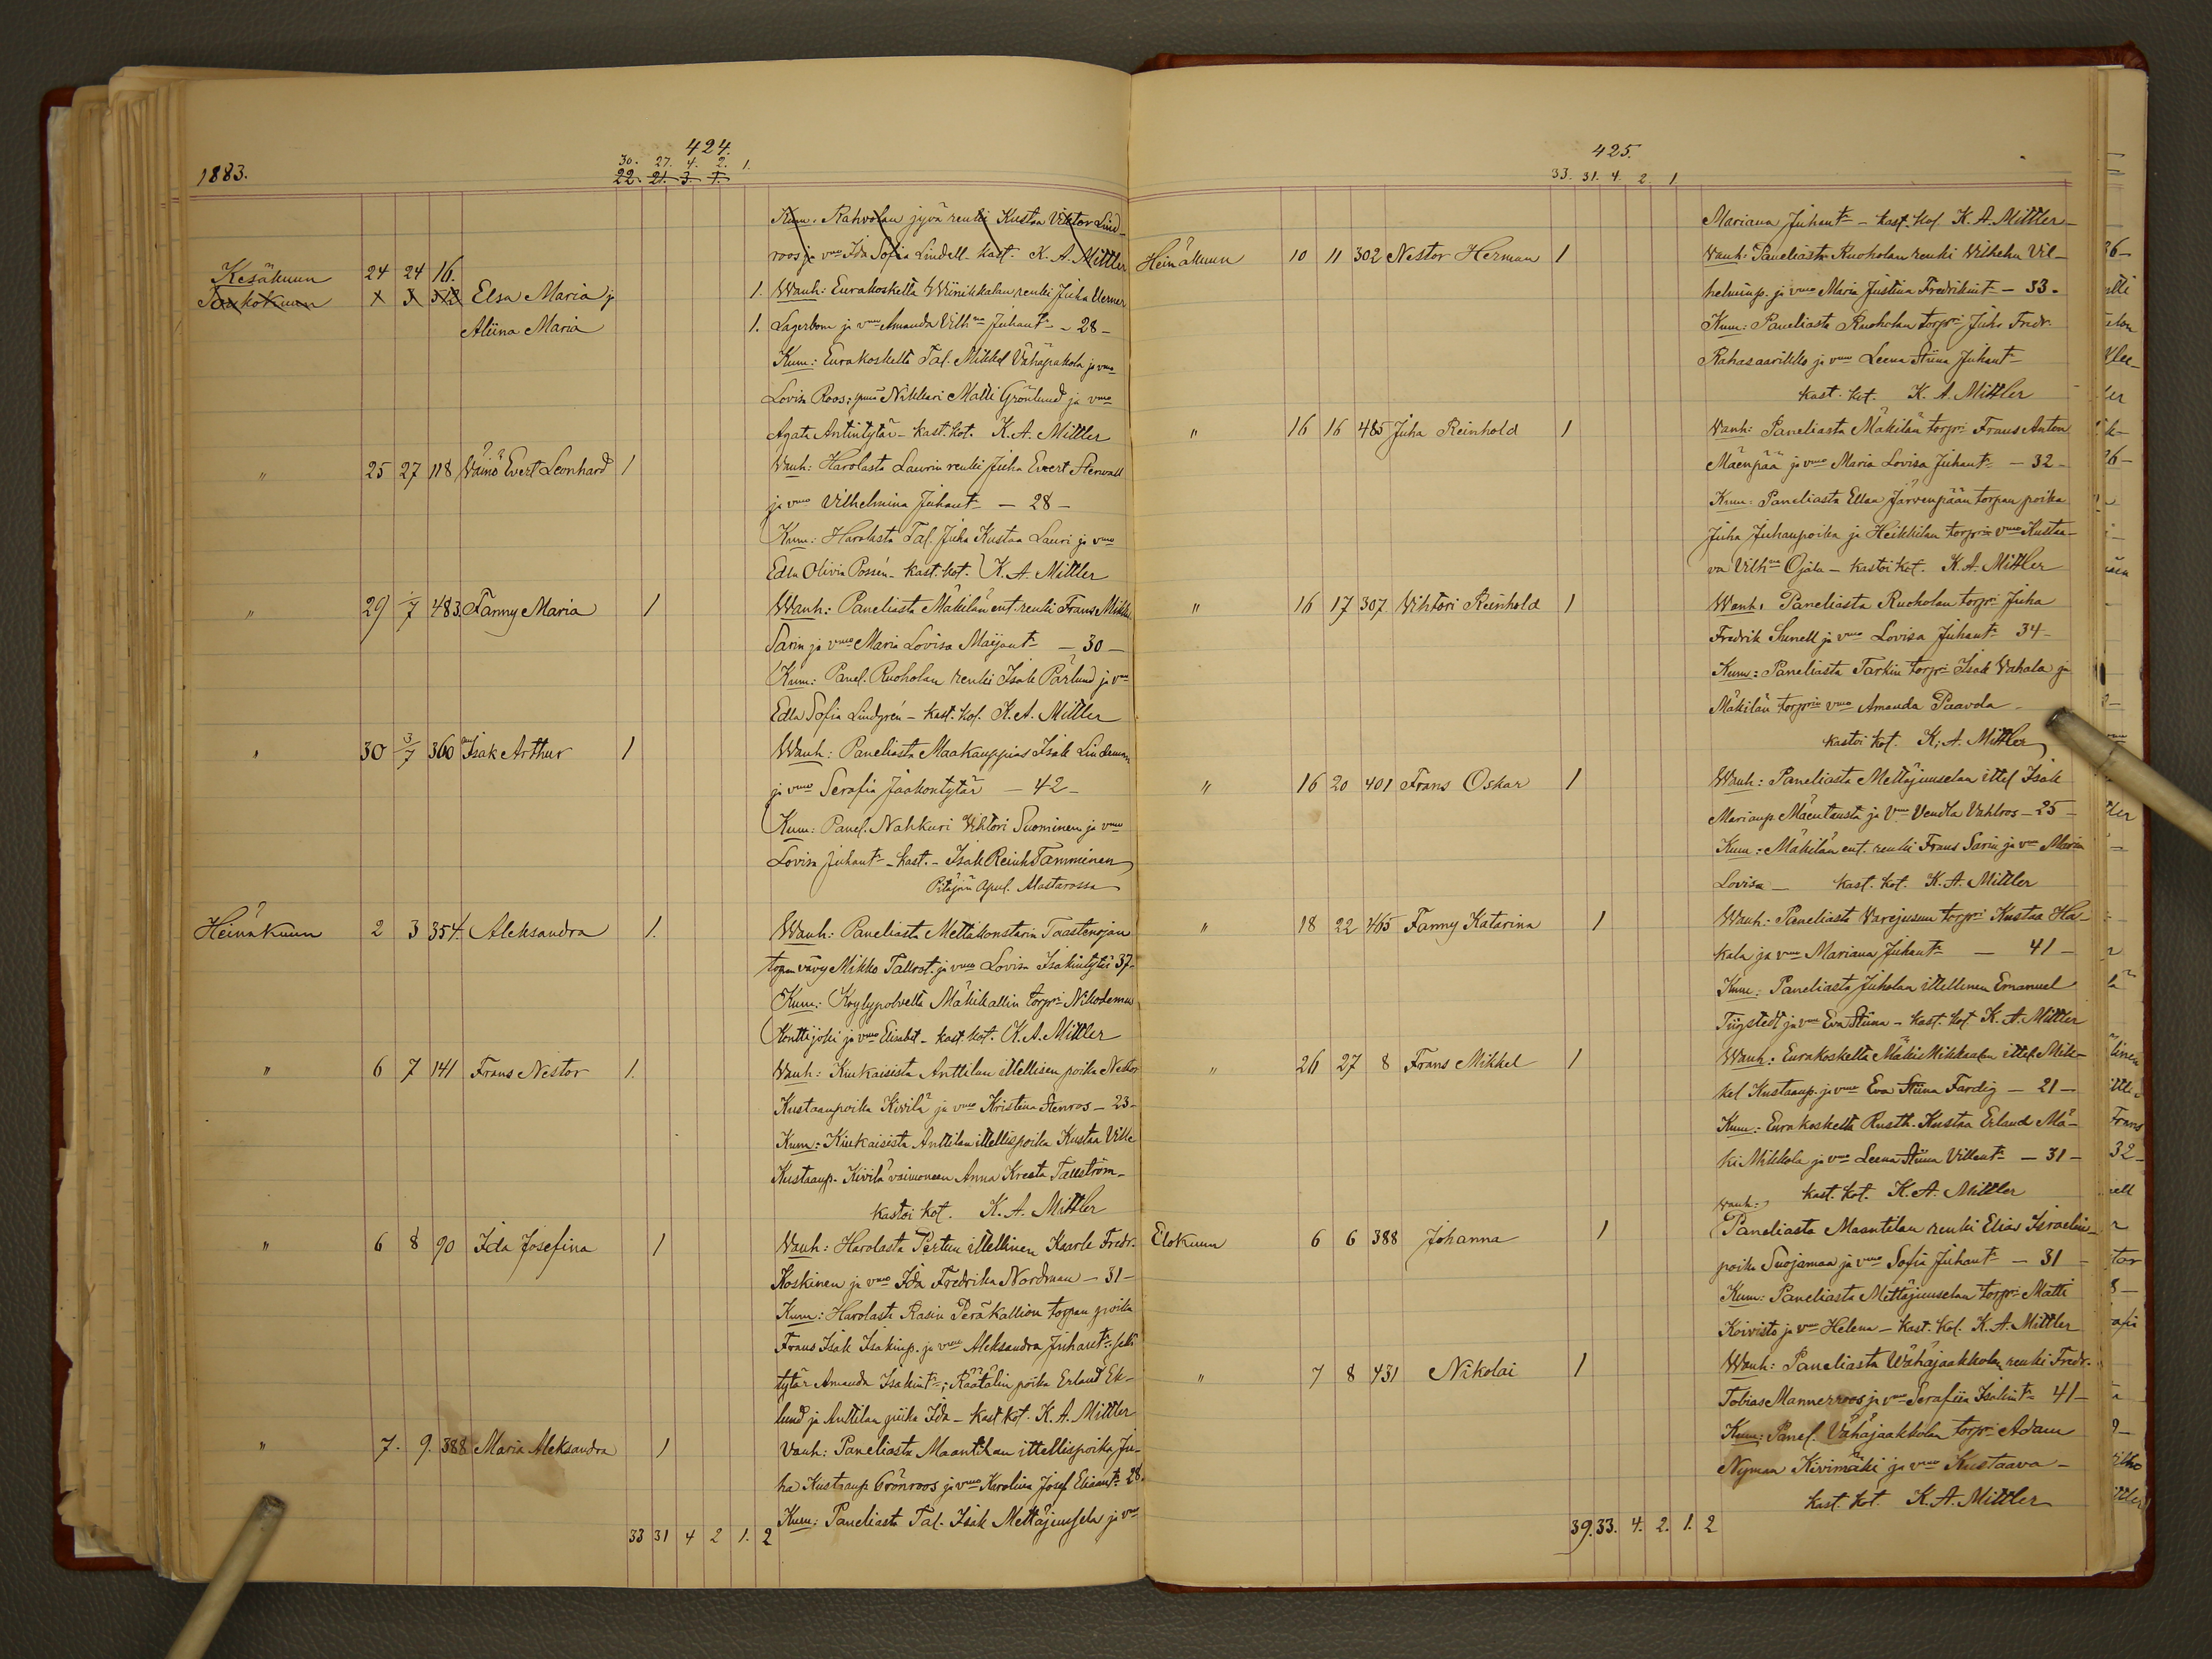 424.
1883.
30. 27. 4. 2. 1.
22. 21. 3. 1.
Kum. Rahvolan jyvä renki Kustaa Viktor Lind-
roos ja vmo Ida Sofia Lindell kast. K. A. Mittler
Kesäkuun 24 24 16.
Toukokuun Elsa Maria ja 1. Wanh: Eurakoskelta Wiinikkalan renki Juha Werner
Aliina Maria 1. Lagerbom ja vmo Amanda Vilhna Juhant. - 28 -
Kum: Eurakoskelta Tal. Mikkel Vähäpakola ja vmo
Lovisa Roos; Nikkari Matti Grönlund ja vmo
Agata Antintytär - kast. kot. K. A. Mittler
" 25 27 118 Väinö Evert Leonhard 1 Wanh: Harolasta Laurin renki Juha Evert Stenvall
ja vmo Vilhelmina Juhant. - 28 -
Kum: Harolasta Tal. Juha Kustaa Lauri ja vmo
Edla Olivia Possén - kast. kot. K. A. Mittler
" 29 1/7 483. Fanny Maria 1 Wanh: Paneliasta Mäkilän ent. renki Frans Mikk.
Sarin ja vmo Maria Lovisa Maijant. - 30 -
Kum: Panel. Ruoholan renki Isak Pärlund ja vmo
Edla Sofia Lindgrén - kast. kot. K. A. Mittler
" 30 3/7 360 Isak Arthur 1 Wanh: Paneliasta Maakauppias Isak Lindeman
ja vmo Serafia Jaakontytär - 42 -
Kum: Panel. Nahkuri Vihtori Suominen ja vmo
Lovisa Juhant. - kast. - Isak Reinh Tamminen
Pitäjän Apul. Alastarossa
Heinäkuun 2 3 354. Aleksandra 1. Wanh: Paneliasta Mettäkonstarin Taastenojan
torpan vävy Mikko Tallrot. ja vmo Lovisa Isakintytär 37.
Kum: Köylypolvelta Mäkikallin torpri Nikodemus
Konttijoki ja vmo Elisabet - kast. kot. K. A. Mittler
" 6 7 141 Frans Nestor 1. Wanh: Kiukaisista Anttilan itellisen poika Nestor
Kustaanpoika Kivilä ja vmo Kristina Stenros - 23 -
Kum: Kiukaisista Anttilan itellispoika Kustaa Ville
Kustaanp. Kivilä vaimoneen Anna Kreeta Tallström -
kastoi kot. K. A. Mittler
" 6 8 90 Ida Josefina 1 Wanh: Harolasta Pertun itellinen Kaarle Fredr.
Koskinen ja vmo Ida Fredrika Nordman - 31 -
Kum: Harolasta Rasin Peräkallion torpan poika
Frans Isak Isakinp. ja vmo Aleksandra Juhant. sekä
tytär Amanda Isakint.; Räätälin poika Erland Ek-
lund ja Anttilan piika Ida - kast. kot. K. A. Mittler
" 7. 9. 388 Maria Aleksandra 1 Vanh: Paneliasta Maantilan itellispoika Ju-
ha Kustaanp. Grönroos ja vmo Karolina Josef. Eliant. 28.
Kum: Paneliasta Tal. Isak Mettäjuusela ja vmo
33 31 4 2 1. 2
425.
33. 31. 4. 2. 1
Mariana Juhant. - kast. kot. K. A. Mittler -
Heinäkuun 10 11 302 Nestor Herman 1 Wanh: Paneliasta Ruoholan renki Vilhelm Vil-
helminp. ja vmo Maria Justina Fredrikint. - 33 -
Kum: Paneliasta Ruoholan torpri Juho Fredr.
Rahasaarikko ja vmo Leena Stiina Juhant.
kast. kot. K. A. Mittler
" 16 16 485 Juha Reinhold 1 Wanh: Paneliasta Mäkilän torpri Frans Anton
Mäenpää ja vmo Maria Lovisa Juhant. - 32 -
Kum: Paneliasta Ellan Järvenpään torpan poika
Juha Juhanpoika ja Heikkilän torprin vmo Kustaa-
va Vilhna Ojala - kastoi kot. K. A. Mittler
" 16 17 307. Vihtori Reinhold 1 Wanh: Paneliasta Ruoholan torpri Juha
Fredrik Sunell ja vmo Lovisa Juhant. 34 -
Kum: Paneliasta Tarkin torpri Isak Vahala ja
Mäkilän torprin vmo Amanda Paavola -
kastoi kot. K. A. Mittler
" 16 20 401 Frans Oskar 1 Wanh: Paneliasta Mettäjuuselan ittel Isak
Marianp. Mäentausta ja Vmo Vendla Vahlros - 25 -
Kum: Mäkilän ent. renki Frans Sarin ja vmo Maria
Lovisa - kast. kot. K. A. Mittler
" 18 22 465 Fanny Katarina 1 Wanh: Paneliasta Varejusun torpri Kustaa Ha-
kala ja vmo Mariana Juhant. - 41 -
Kum: Paneliasta Juholan ittellinen Emanuel
Tiigstedt ja vmo Eva Stiina - kast. kot. K. A. Mittler
" 26 27 8 Frans Mikkel 1 Wanh: Eurakoskelta Mäkimikkalan ittel. Mik-
kel Kustaanp. ja vmo Eva Stiina Fardig - 21 -
Kum: Eurakoskelta Rusth. Kustaa Erland Mä-
ki Mikkola ja vmo Leena Stiina Villent. - 31 -
kast. kot. K. A. Mittler
Wanh:
Elokuun 6 6 388 Johanna 1 Paneliasta Maantilan renki Elias Israelin-
poika Suojamaa ja vmo Sofia Juhant. - 31 -
Kum: Paneliasta Mettäjuuselan torpri Matti
Koivisto ja vmo Helena - kast. kot. K. A. Mittler
" 7 8 431 Nikolai 1 Wanh: Paneliasta Wähäjaakkolan renki Fredr.
Tobias Mannerroos ja vmo Serafiia Isakint. 41 -
Kum: Panel. Vähäjaakkolan torpri Adam
Nyman Kivimäki ja vmo Kustaava -
kast. kot. K. A. Mittler
39. 33. 4. 2. 1. 2